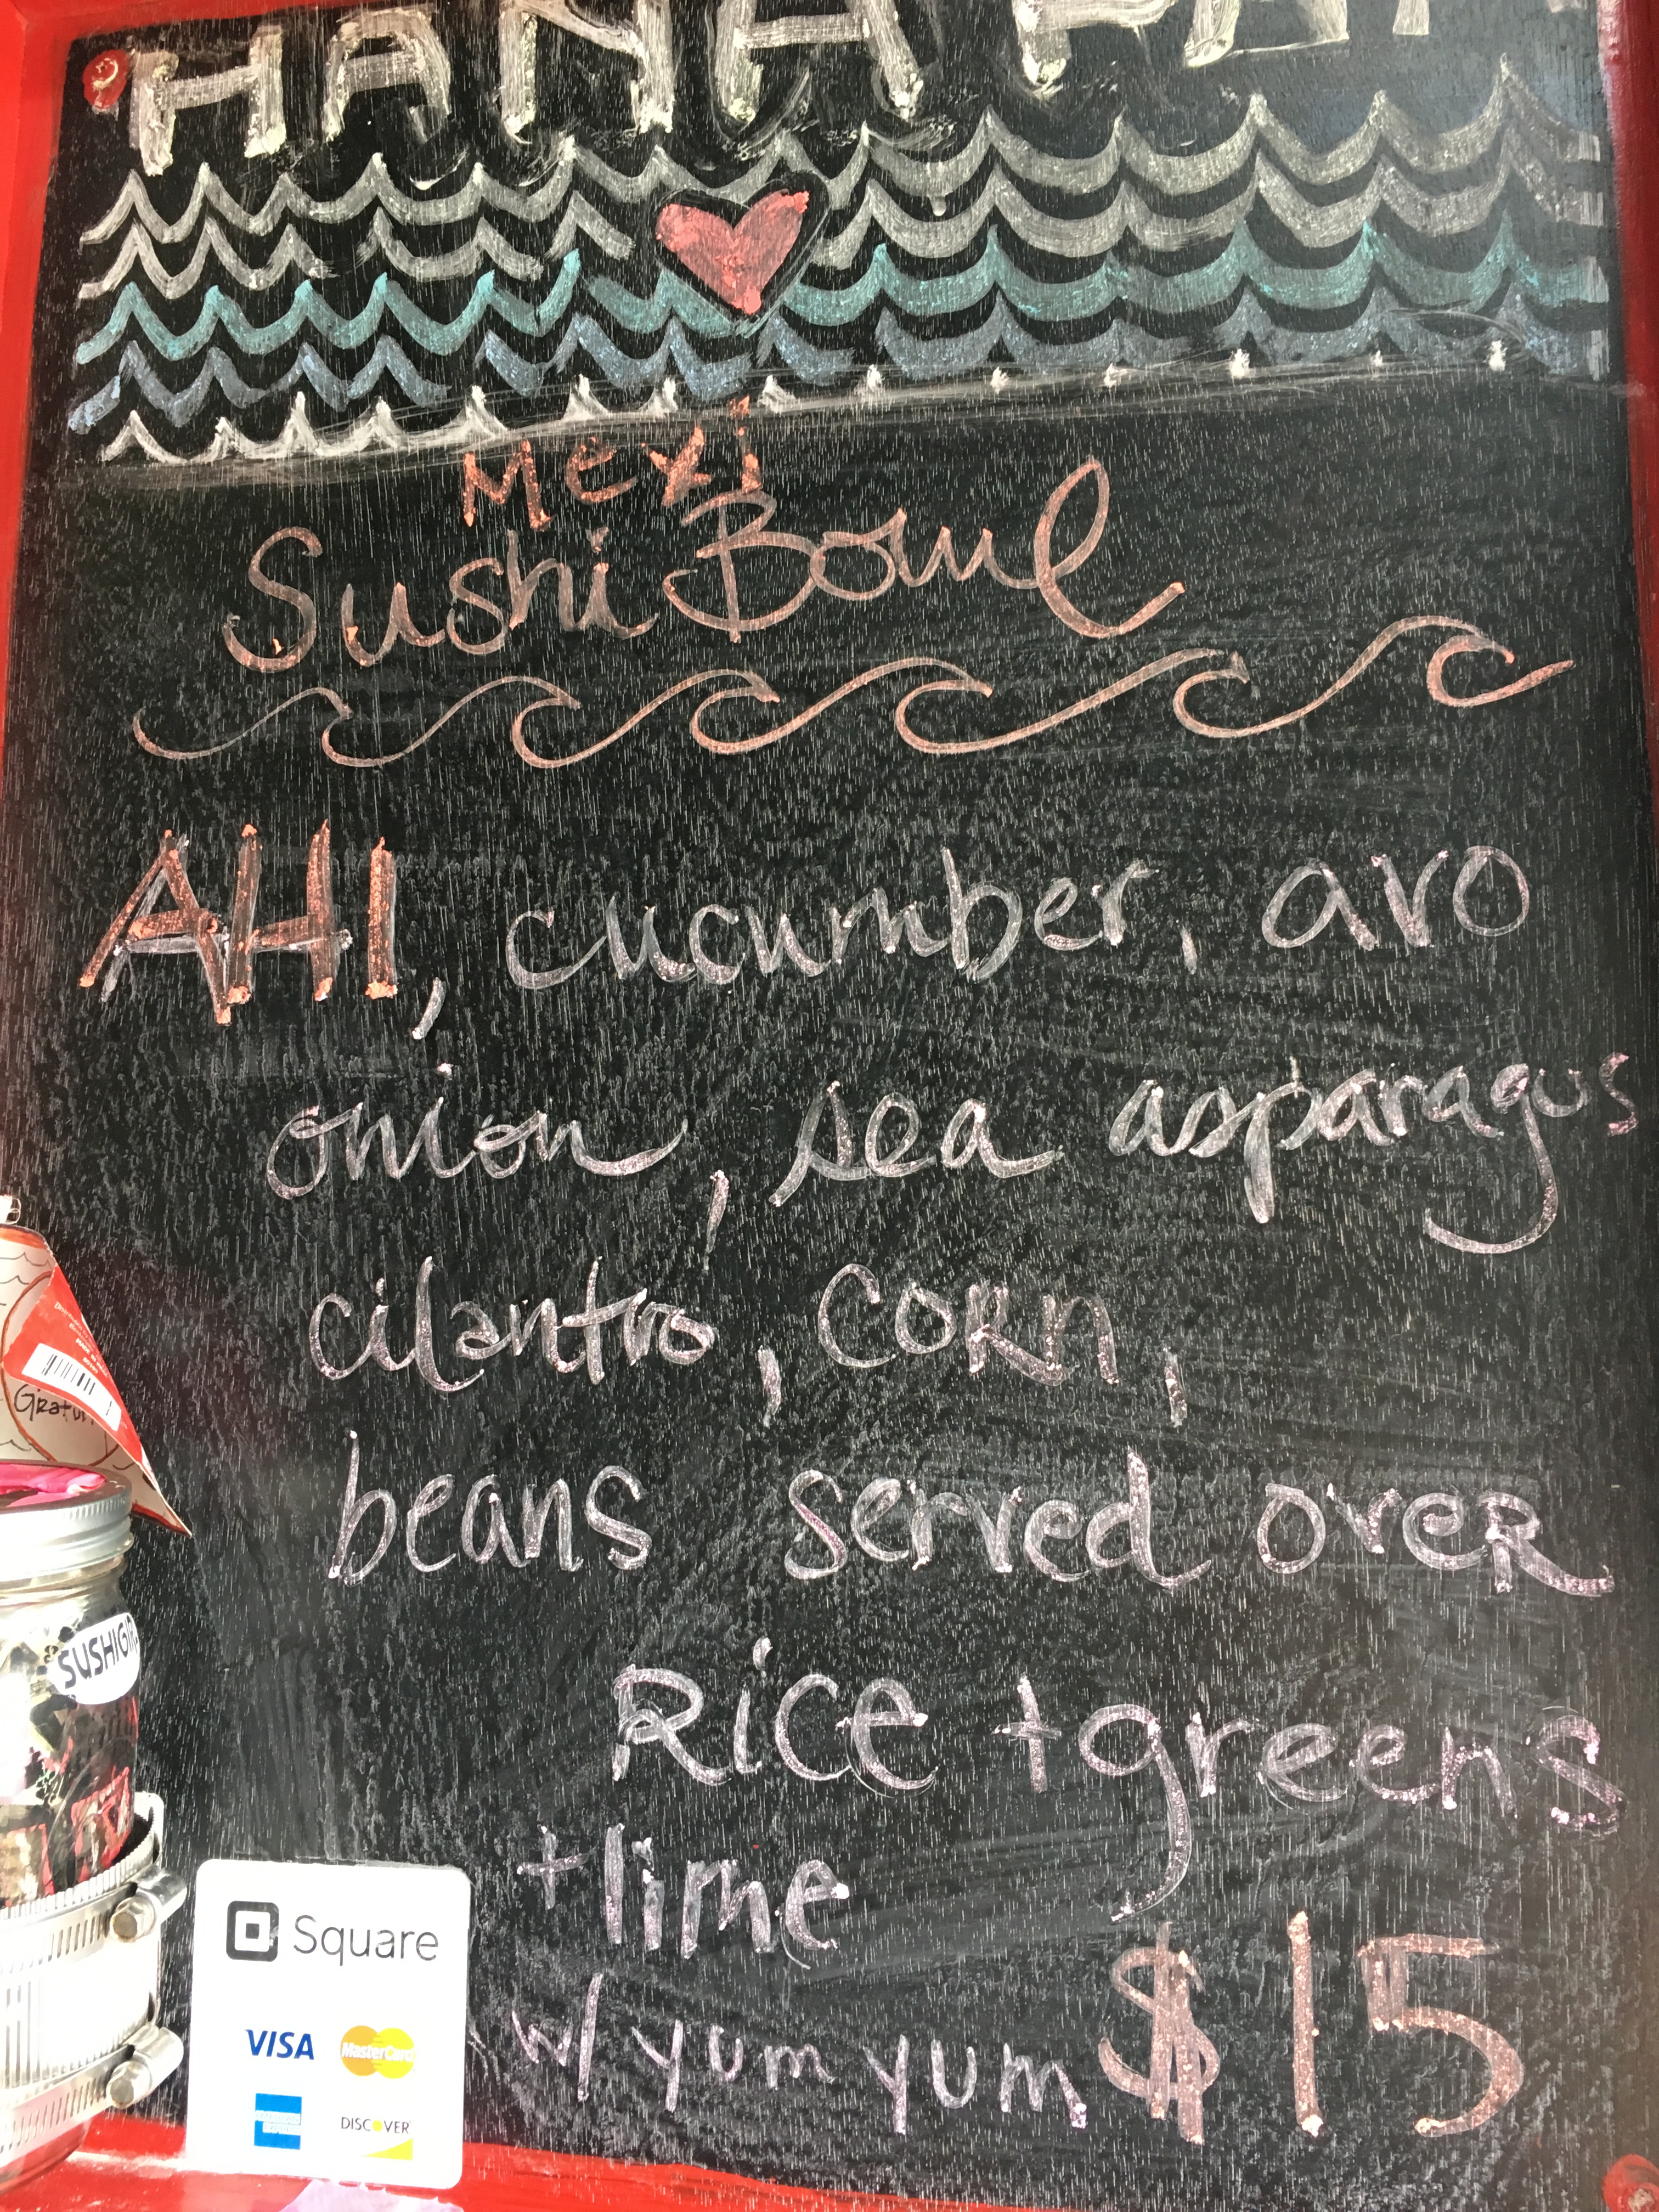 HANA
Mexi
Sushi Bowl
AHI, cucumber, avo
onion, sea asparagus
cilantro, CORn,
beans served oveR
Rice + greens
+ lime
w/ yum yum $15
Square
VISA MasterCard
AMERICAN EXPRESS DISCOVER
SUSHIGI